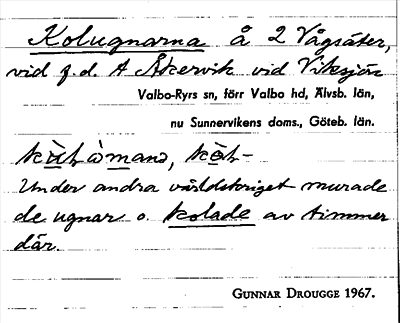 Kolugnarna å 2 Vågsäter,
vid f.d. t Åkervik vid Viksjön
Valbo-Ryrs sn, förr Valbo hd, Älvsb. län,
nu Sunnervikens doms., Göteb. län.
Under andra världskriget murade
de ugnar o. kolade av timmer
där.
GUNNAR DROUGGE 1967.